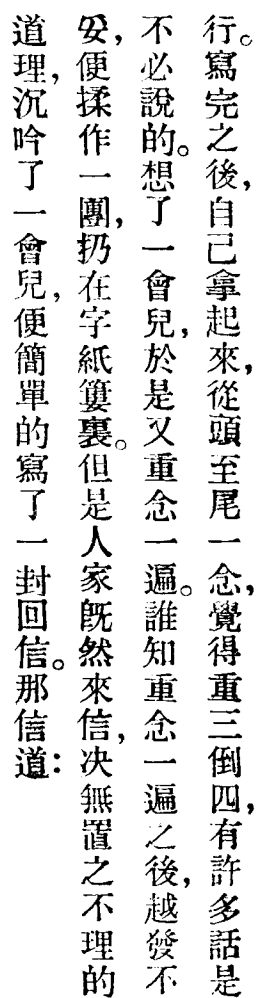 行。寫完之後，自己拿起來，從頭至尾一念，覺得重三倒四，有許多話是
不必說的。想了一會兒，於是又重念一遍。誰知重念一遍之後，越發不
妥，便揉作一團，扔在字紙簍裏。但是人家旣然來信，决無置之不理的
道理，沉吟了一會兒，便簡單的寫了一封回信。那信道：